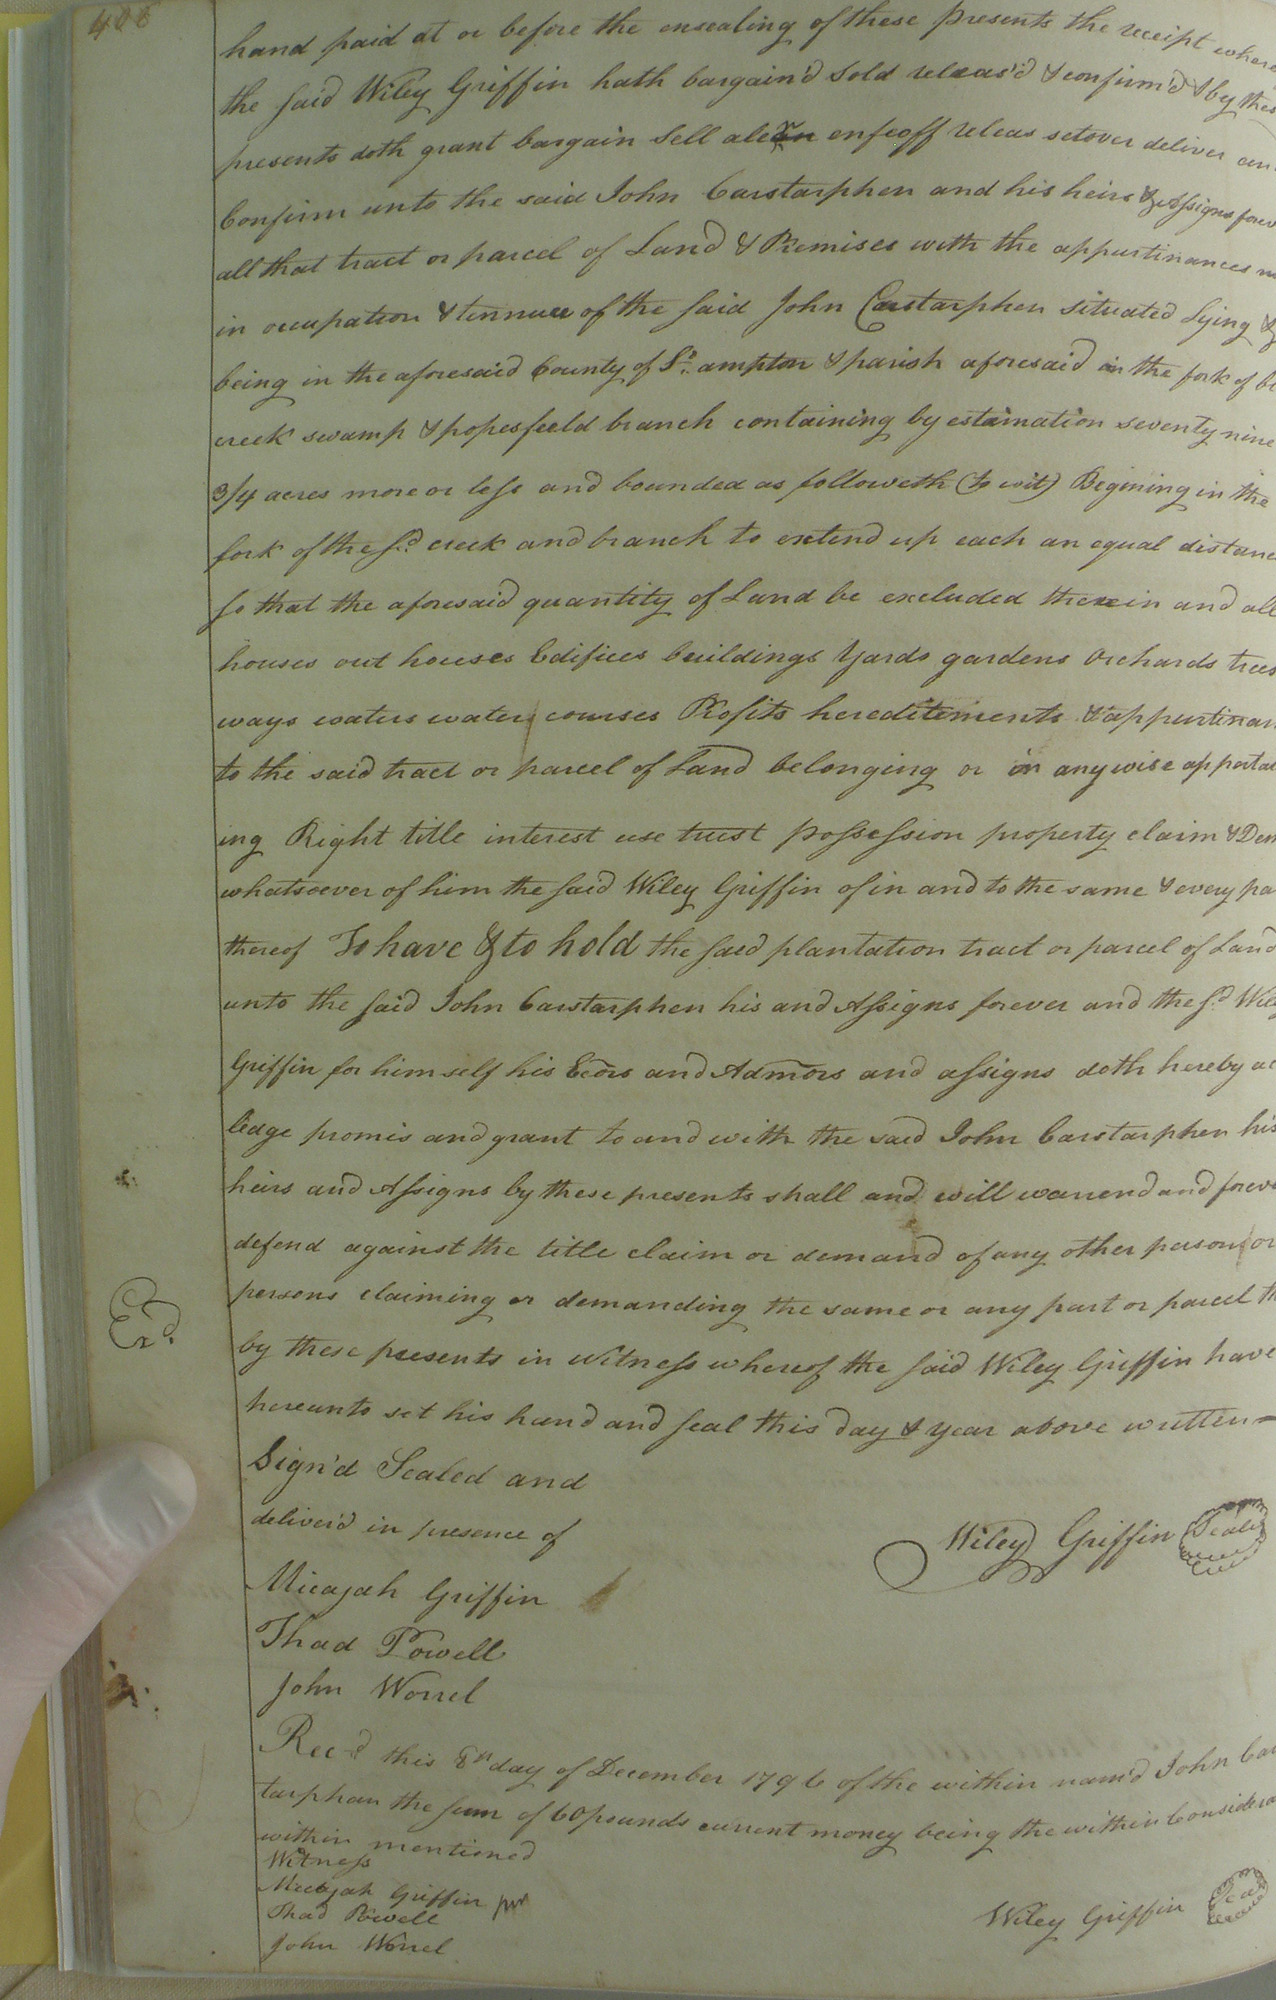 406
hand paid at or before the ensealing of these presents the receipt where
the said Wiley Griffin hath bargain'd sold releas'd & confirm'd & by thes
presents doth grant bargain sell alein enfeoff releas setover deliver an
Confirm unto the said John Carstarphen and his heirs & Assigns forev
all that tract or parcel of Land & Premises with the appurtinances
in occupation & tennuer of the said John Carstarphen situated lying &
being in the aforesaid County of So. ampton & parish aforesaid in the fork of
creek swamp & popesfeeld branch containing by estamation seventy nine
3/4 acres more or less and bounded as followeth (to wit) Begining in the
fork of the sd. creek and branch to extend up each an equal distanc
so that the aforesaid quantity of Land be excluded therein and all
houses out houses Edifices buildings Yards gardens Orchards trees
ways waters water courses Profits hereditements & appurtinan
to the said tract or parcel of Land belonging or in anywise appertai
ing Right title interest use trust possession property claim & Dem
whatsoever of him the said Wiley Griffin of in and to the same & every pa
thereof To have & to hold the said plantation tract or parcel of Land
unto the said John Carstarphen his and Assigns forever and the sd. Wiley
Griffin for himself his Exors and Admors and assigns doth hereby ac
ledge promis and grant to and with the said John Carstarphen his
heirs and Assigns by these presents shall and will warrend and forev
defend against the title claim or demand of any other person or
persons claiming or demanding the same or any part or parcel th
Exd.
by these presents in witness whereof the said Wiley Griffin have
hereunto set his hand and seal this day & year above written
Sign'd Sealed and
deliver'd in presence of
Wiley Griffin Seal
Micajah Griffin
Thad Powell
John Worrel
Rec'd this 8th day of December 1796 of the within nam'd John Cars
tarphan the sum of 60 pounds current money being the within Considera
within mentioned
Witness
Micajah Griffin
Thad Powell
Wiley Griffin Seal
John Worrel